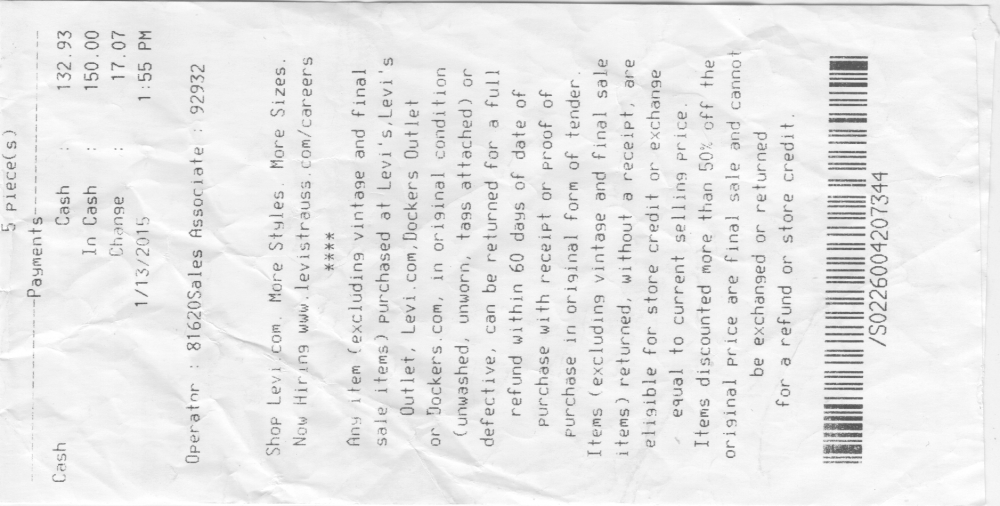 5 Piece(s)
--------Payments--------
Cash Cash : 132.93
In Cash : 150.00
Change : 17.07
1/13/2015 1:55 PM
Operator : 81620Sales Associate : 92932
Shop Levi.com. More Styles. More Sizes.
Now Hiring www.levistrauss.com/careers
****
Any item (excluding vintage and final
sale items) purchased at Levi's,Levi's
Outlet, Levi.com,Dockers Outlet
or Dockers.com, in original condition
(unwashed, unworn, tags attached) or
defective, can be returned for a full
refund within 60 days of date of
purchase with receipt or proof of
purchase in original form of tender.
Items (excluding vintage and final sale
items) returned, without a receipt, are
eligible for store credit or exchange
equal to current selling price.
Items discounted more than 50% off the
original price are final sale and cannot
be exchanged or returned
for a refund or store credit.
/S0226004207344